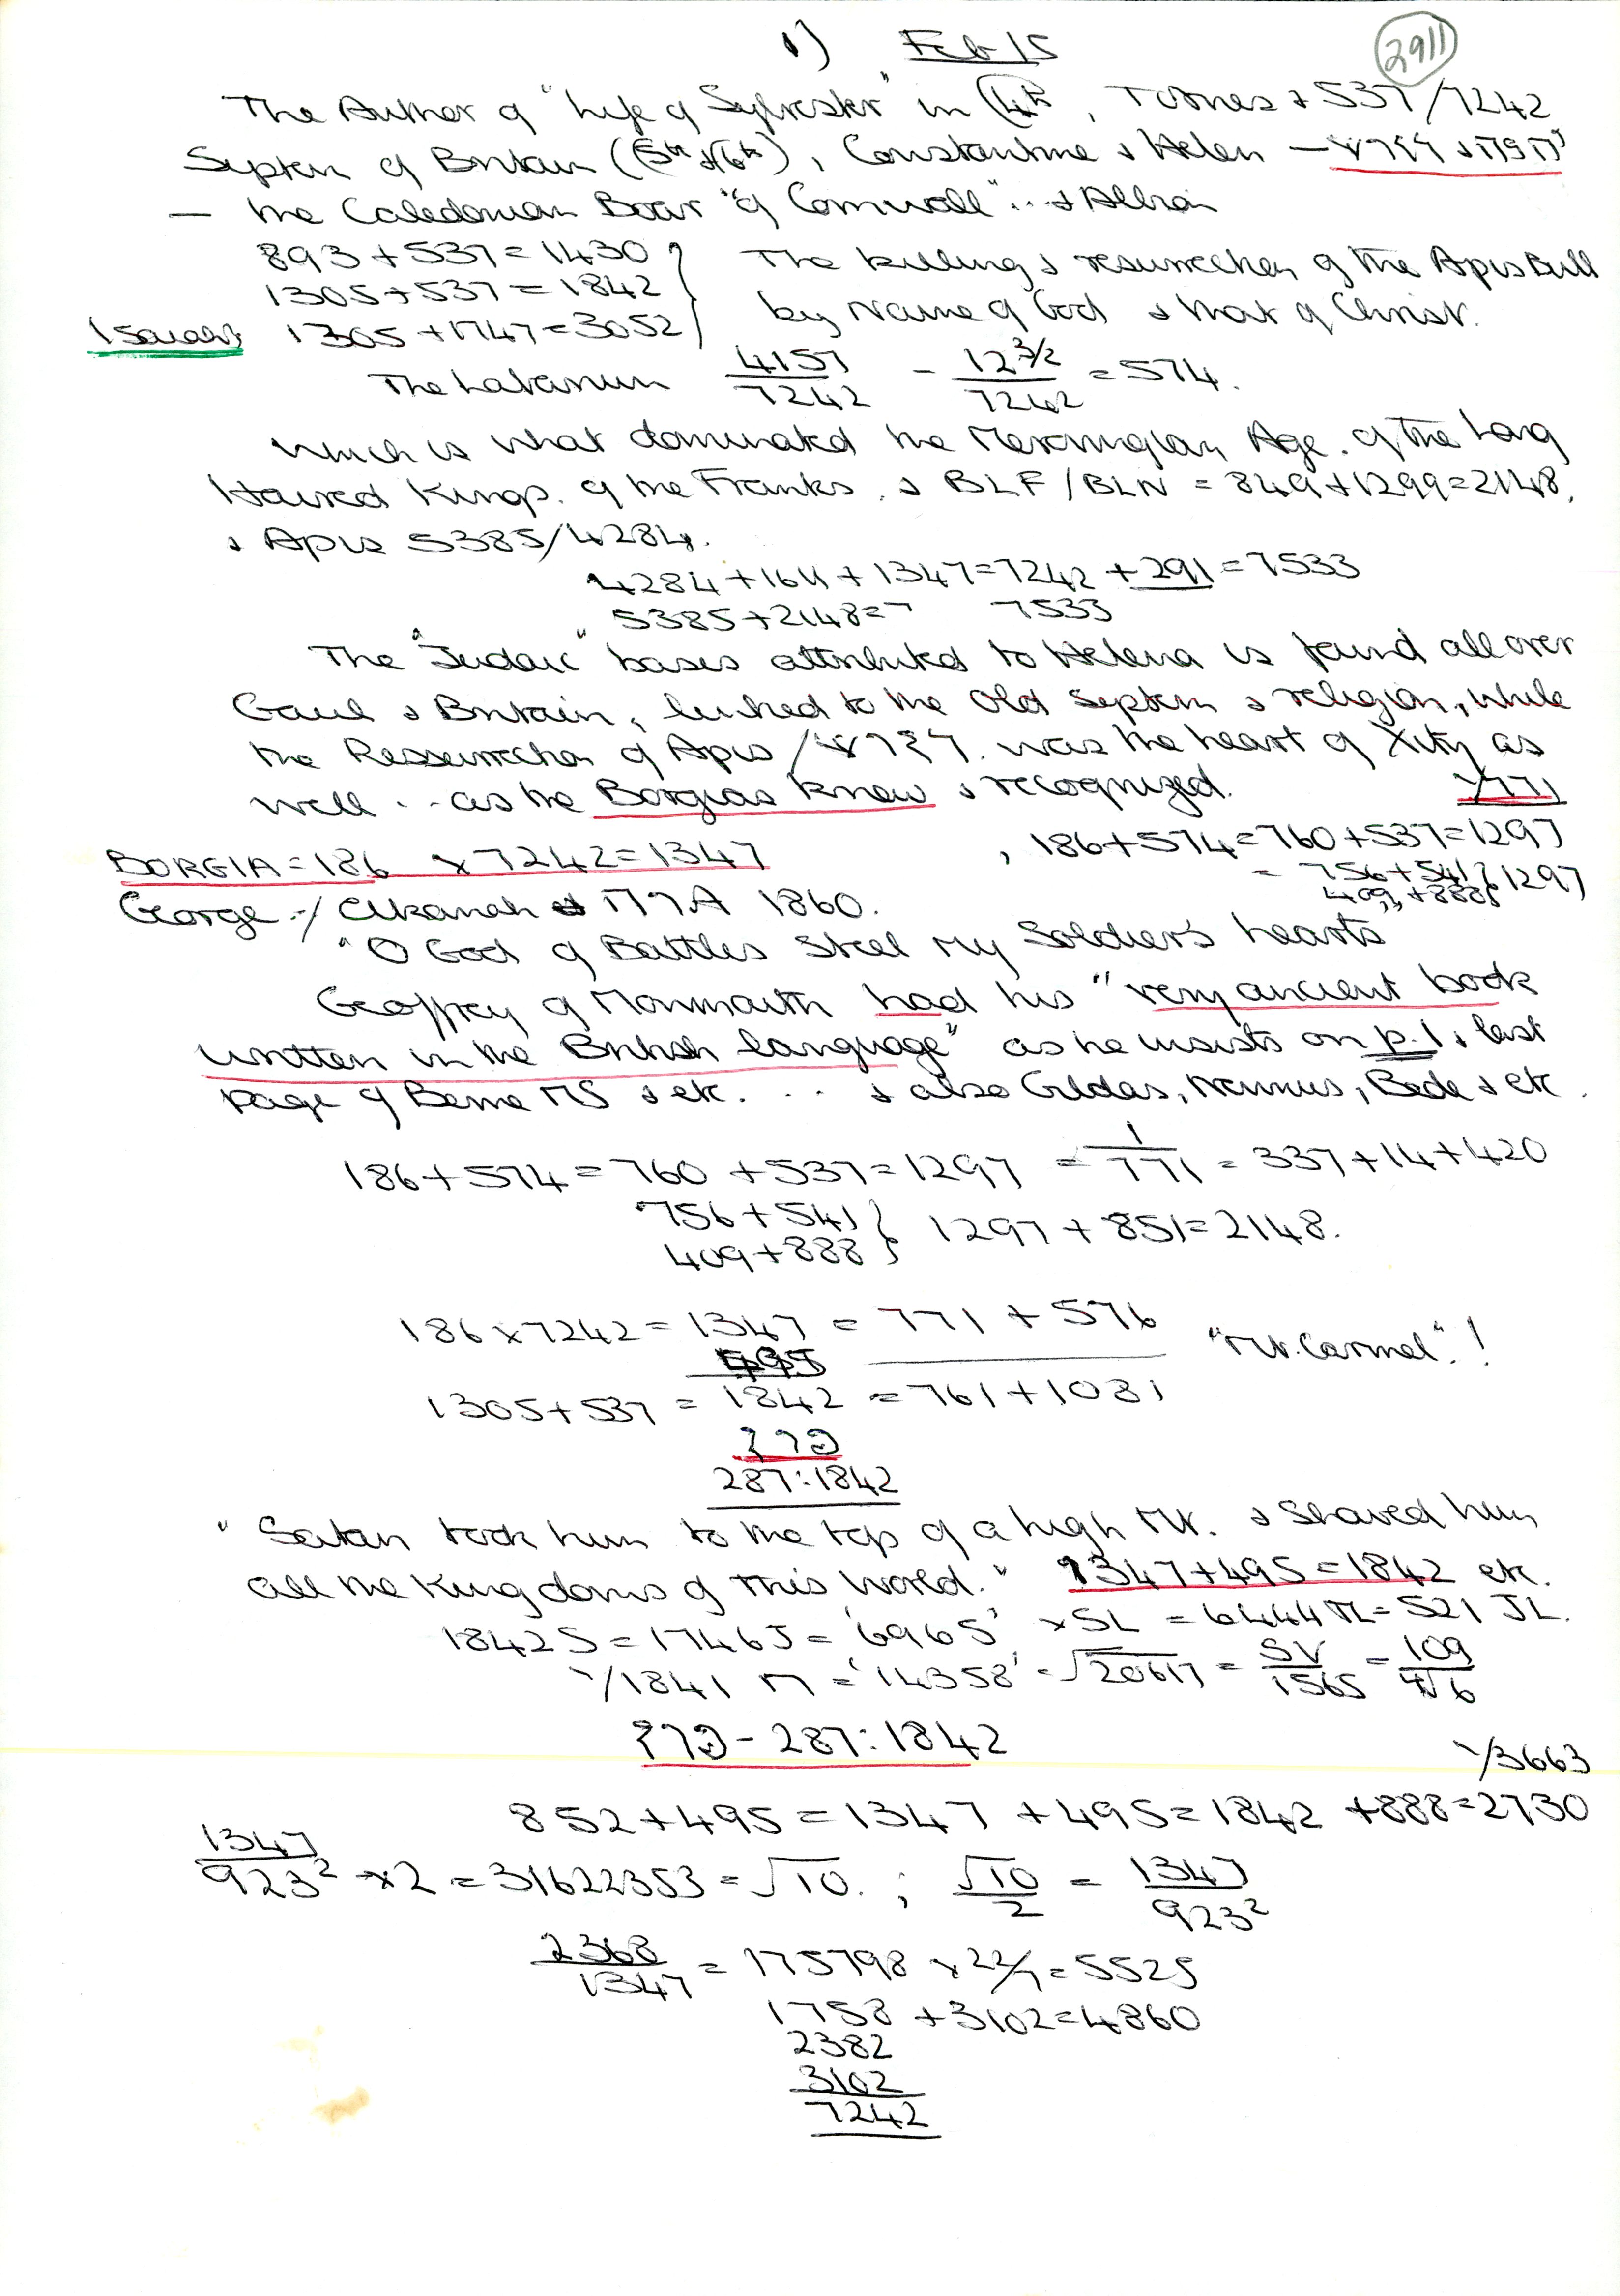 1) Feb 15
2911
The Author of "Life of Sylvester" in (4th, Totnes & 537/7242
System of Britain (5th & 6th), Constantine & Helen —
— the Caledonian Boar "of Cornwall" .. & Albion
893 + 537 = 1430
1305 + 537 = 1842
Isaiah; 1305 + 1747 = 3052
The killing & resurrection of the Apis Bull
by Name of God & that of Christ.
The Lateranum 4157/7242 - 12 3/2 / 7242 = 574.
Which is what dominated the Merovingian Age. of the Long
Haired Kings. of the Franks. & BLF / BLN = 849 + 1299 = 2148.
& Apis 5385/4284.
4284 + 1611 + 1347 = 7242 + 291 = 7533
5385 + 2148 = 7 7533
The "Judaic" bases attributed to Helena is found all over
Gaul & Britain, linked to the Old System & religion, while
the Ressurrection of Apis / was the heart of Xity as
well . . . as the Borgias knew & recognized. 1/771
BORGIA = 186 x 7242 = 1347 , 186 + 574 = 760 + 537 = 1297
= 756 + 541 } 1297
409 + 888
George / Elkanah 1860.
"O God of Battles Steel my Soldier's hearts
Geoffrey of Monmouth had his "very ancient book
written in the British language" as he insists on p. 1 & last
page of Berne MS & etc. . . . & also Gildas, Nennius, Bede & etc.
186 + 574 = 760 + 537 = 1297 = 1/771 = 337 + 14 + 420
756 + 541 } 1297 + 851 = 2148.
409 + 888
186 x 7242 = 1347 = 771 + 576 "Mt. Carmel". !
495
1305 + 537 = 1842 = 761 + 1081
287:1842
"Satan took him to the top of a high Mt. & Showed him
all the Kingdoms of this World." 1347 + 495 = 1842 etc.
1842 S = 1746 J = '6965' x SL = 6444 TL = 521 JL.
1/1841 M = '14358' = √20617 = SV/1565 = 109/4√6
- 287:1842
1/3663
852 + 495 = 1347 + 495 = 1842 + 888 = 2730
1347/923² x 2 = 31622353 = √10. ; √10/2 = 1347/923²
2368/1347 = 175798 x 22/7 = 5525
1758 + 3102 = 4860
2382
3102
7242